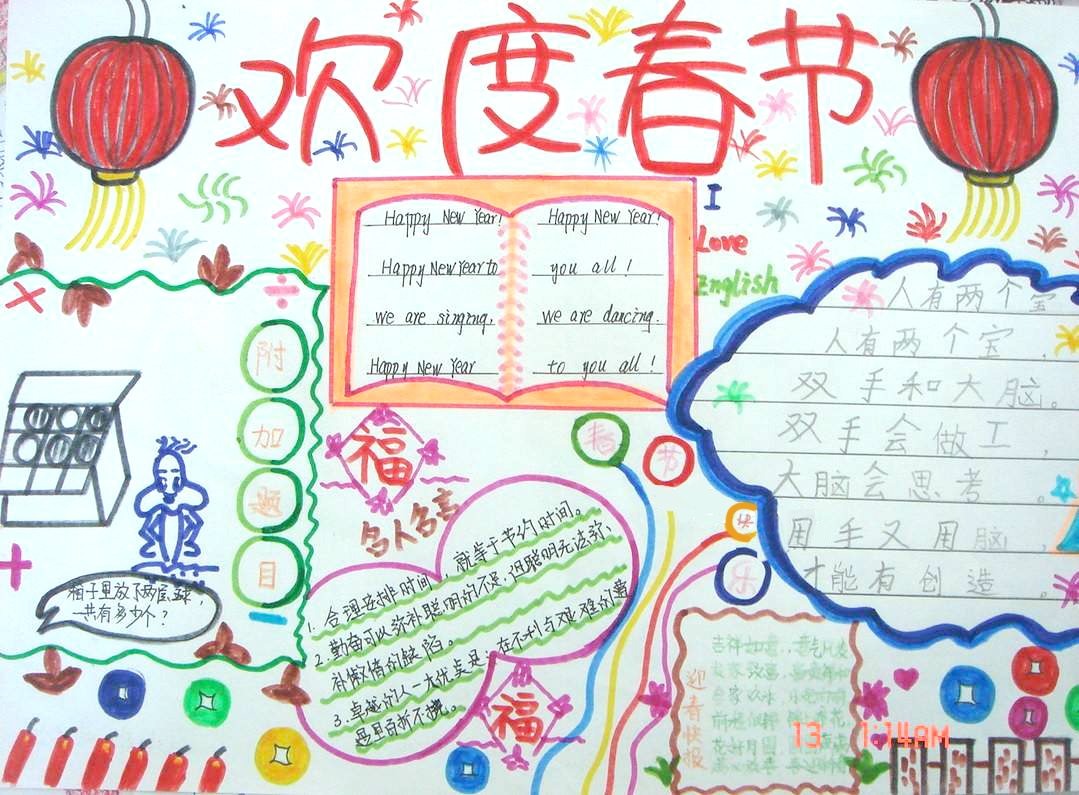 欢度春节
Happy New Year! Happy New Year!
Happy New Year to you all!
We are singing, We are dancing.
Happy New Year to you all!
I
Love
English
附
加
题
目
箱子里放了两层球,
一共有多少个?
福
名人名言
1. 合理安排时间,就等于节约时间。
2. 勤奋可以弥补聪明的不足,但聪明无法弥
补懒惰的缺陷。
3. 卓越的人一大优点是:在不利与艰难的遭
遇里百折不挠。
福
春
节
快
乐
人有两个宝
人有两个宝,
双手和大脑。
双手会做工,
大脑会思考。
用手又用脑,
才能有创造。
迎春快报
吉祥如意
13 1:14AM